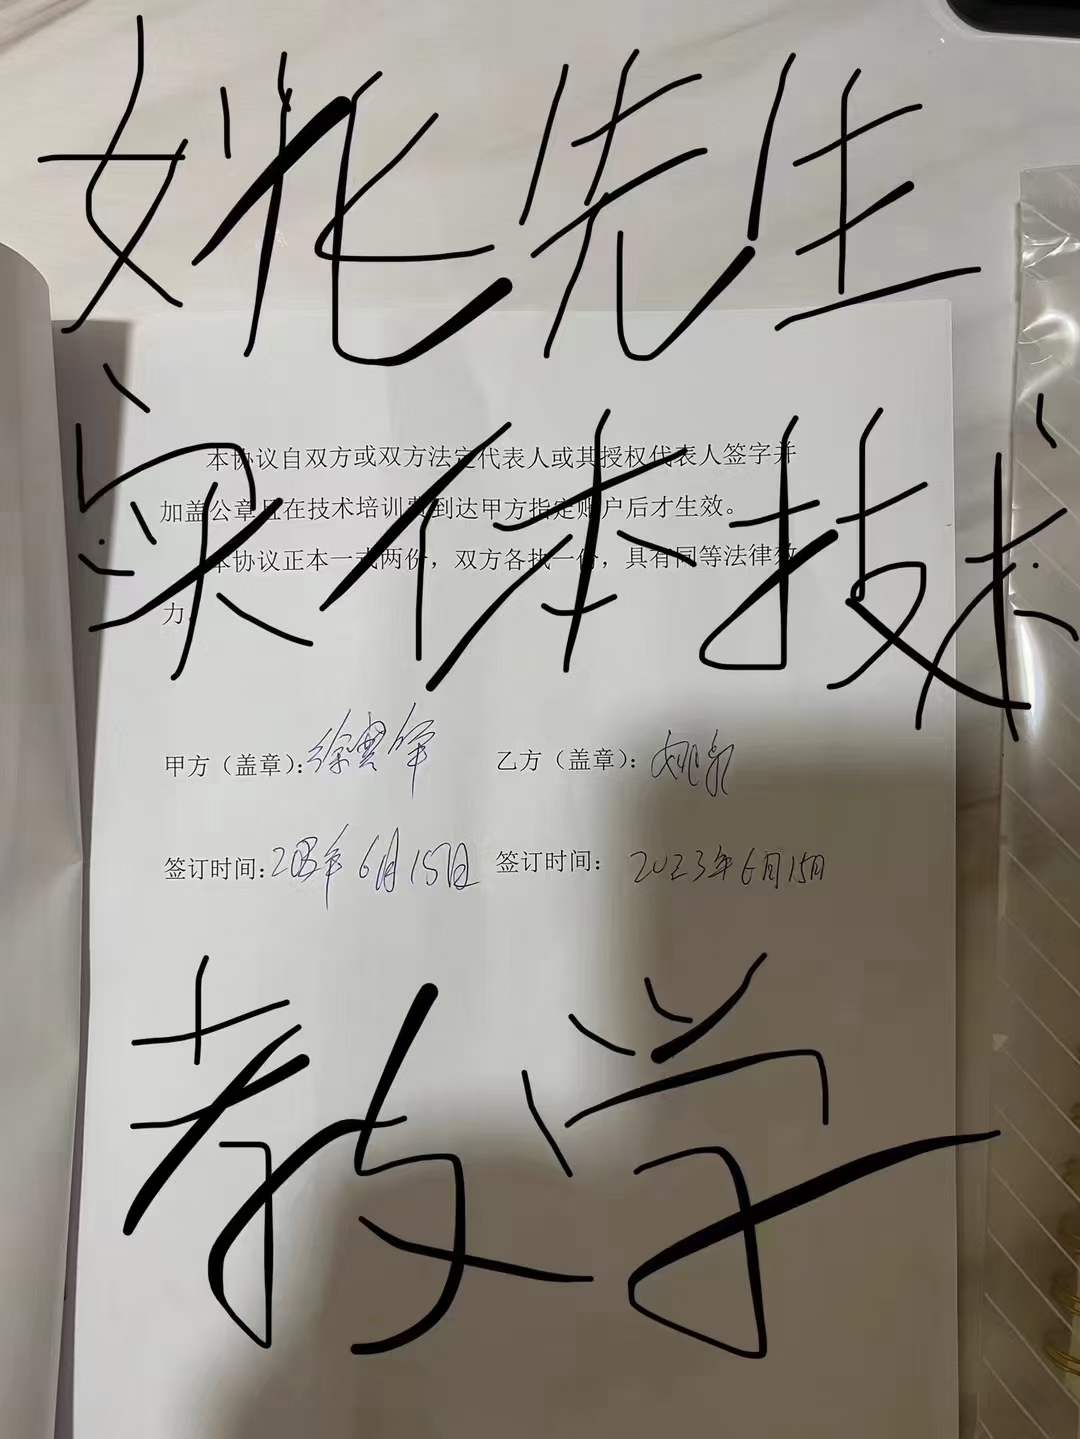 姚先生
本协议自双方或双方法定代表人或其授权代表人签字并
加盖公章且在技术培训费到达甲方指定账户后才生效。
实体技术
本协议正本一式两份，双方各执一份，具有同等法律效
力。
甲方（盖章）： 乙方（盖章）：
签订时间： 2023年6月15日 签订时间： 2023年6月15日
教学